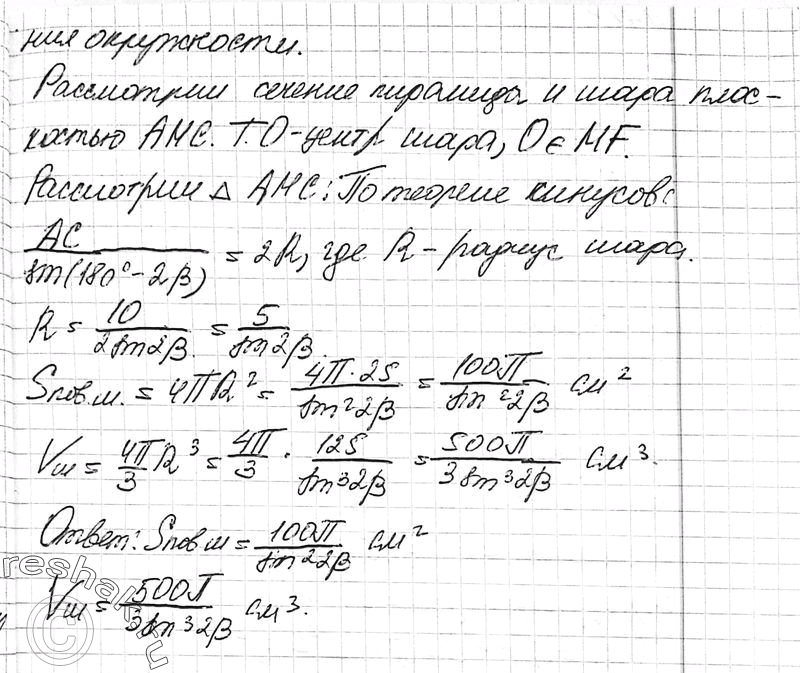 ния окружности.
Рассмотрим сечение пирамиды и шара плос-
костью AMC. T.O-центр шара, O ∈ MF.
Рассмотрим △ AMC: По теореме синусов:
AC / sin(180° - 2β) = 2R, где R - радиус шара.
R = 10 / 2sin2β = 5 / sin2β.
Sпов.ш. = 4πR² = 4π·25 / sin²2β = 100π / sin²2β см²
Vш = 4π/3 R³ = 4π/3 · 125 / sin³2β = 500π / 3sin³2β см³.
Ответ: Sпов.ш = 100π / sin²2β см²
Vш = 500π / 3sin³2β см³.
©reshak.ru